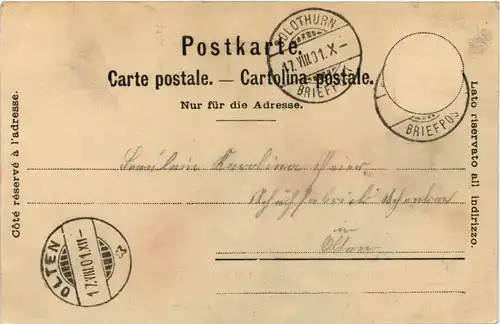 Postkarte.
Carte postale. — Cartolina postale.
Nur für die Adresse.
Côté réservé à l'adresse.
Lato riservato all indirizzo.
SOLOTHURN
17.VIII.01.X-
BRIEFPOS
BRIEFPOS
Fräulein Karolina Meier
in
Olten
OLTEN
17.VIII.01.XII-